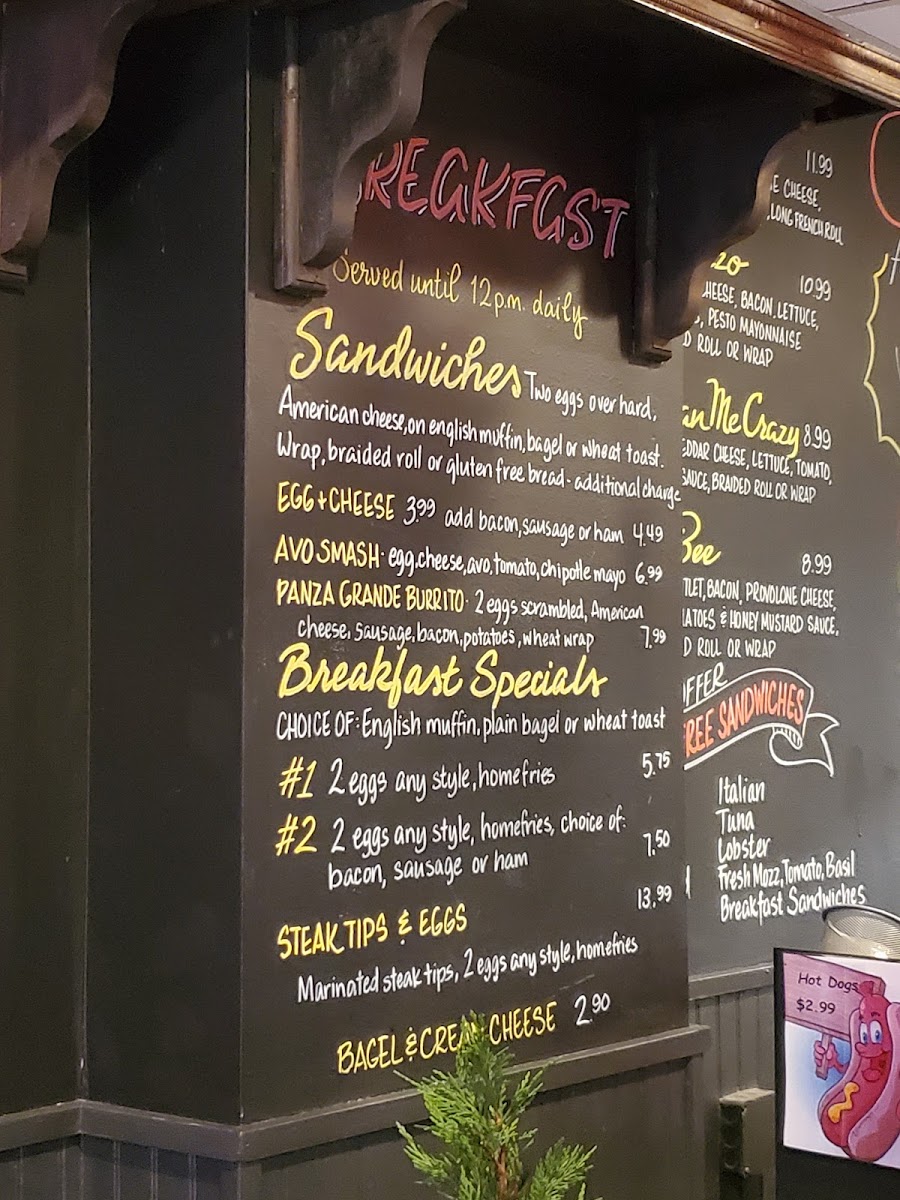 BREAKFAST
Served until 12p.m. daily
Sandwiches Two eggs over hard,
American cheese, on english muffin, bagel or wheat toast.
Wrap, braided roll or gluten free bread - additional charge
EGG + CHEESE 3.99 add bacon, sausage or ham 4.49
AVO SMASH · egg, cheese, avo, tomato, chipotle mayo 6.99
PANZA GRANDE BURRITO · 2 eggs scrambled, American
cheese, sausage, bacon, potatoes, wheat wrap 7.99
Breakfast Specials
CHOICE OF: English muffin, plain bagel or wheat toast
#1 2 eggs any style, homefries 5.75
#2 2 eggs any style, homefries, choice of: 7.50
bacon, sausage or ham
STEAK TIPS & EGGS 13.99
Marinated steak tips, 2 eggs any style, homefries
BAGEL & CREAM CHEESE 2.90
11.99
CHEESE,
LONG FRENCH ROLL
10.99
CHEESE, BACON, LETTUCE,
PESTO MAYONNAISE
ROLL OR WRAP
Me Crazy 8.99
CHEESE, LETTUCE, TOMATO,
SAUCE, BRAIDED ROLL OR WRAP
Bee 8.99
BACON, PROVOLONE CHEESE,
& HONEY MUSTARD SAUCE,
ROLL OR WRAP
OFFER
FREE SANDWICHES
Italian
Tuna
Lobster
Fresh Mozz, Tomato, Basil
Breakfast Sandwiches
Hot Dogs
$2.99